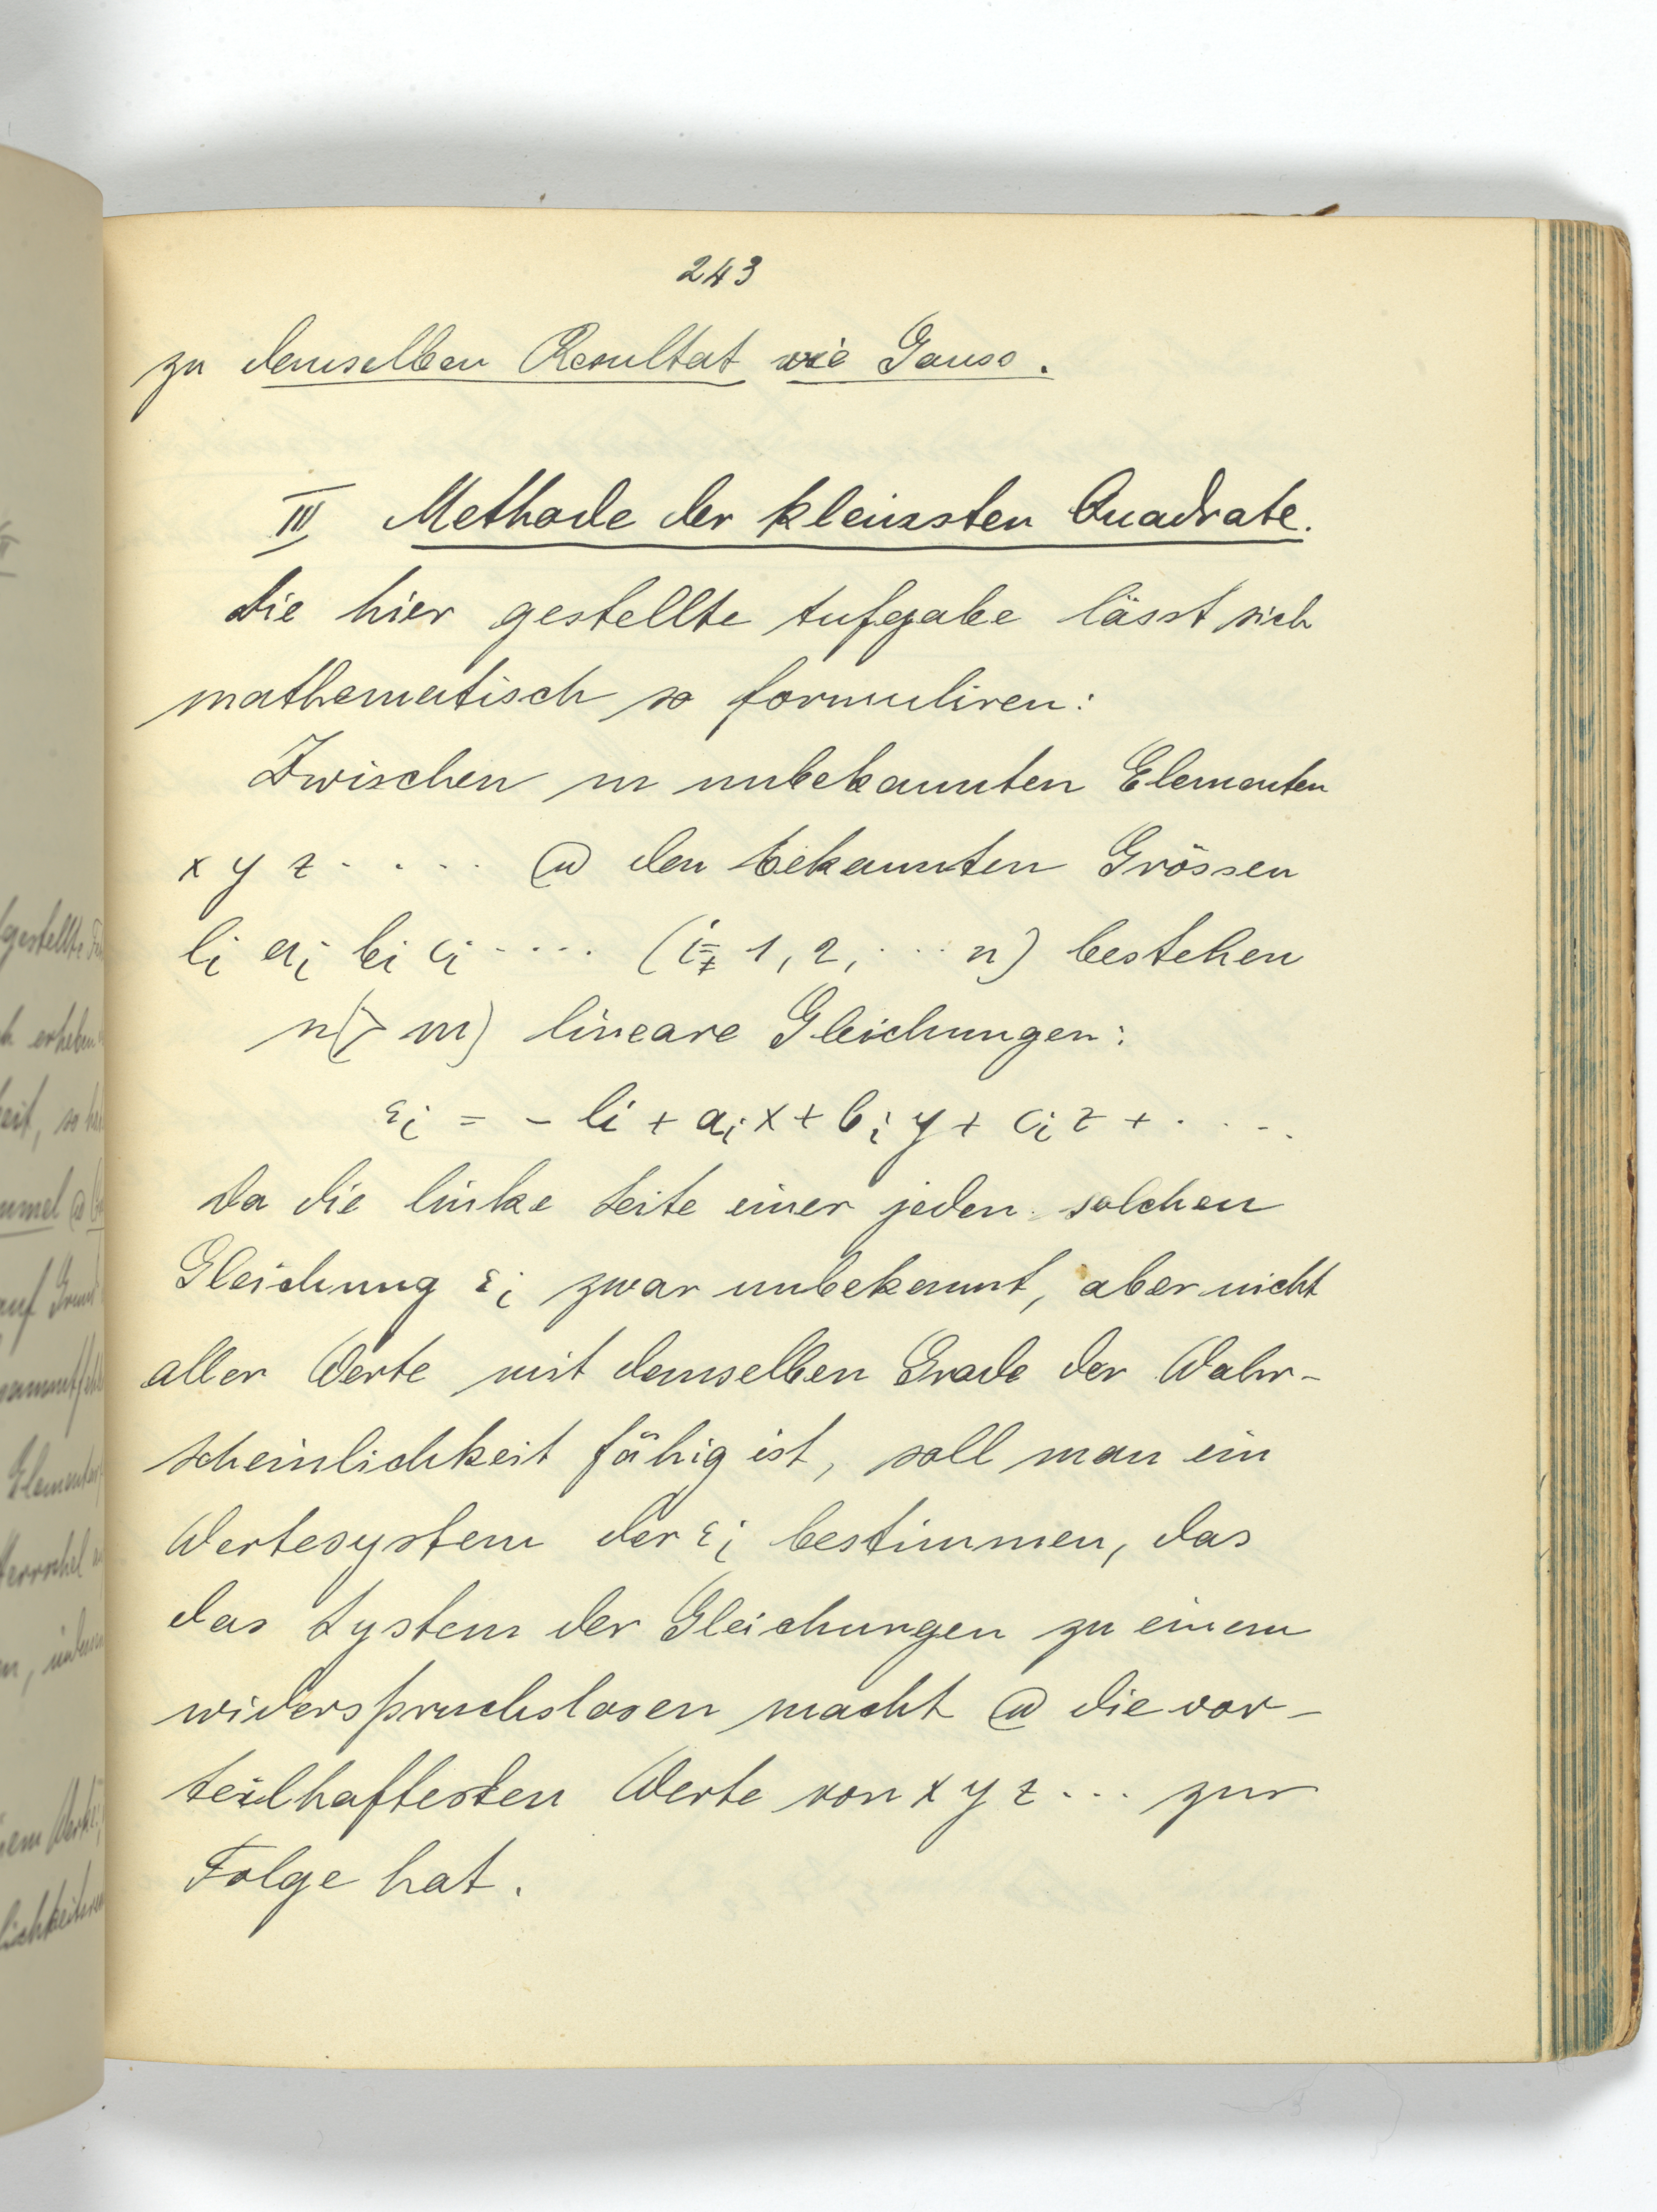 243
zu demselben Resultat wie Gauss.
IV Methode der kleinsten Quadrate.
Die hier gestellte Aufgabe lässt sich
mathematisch so formuliren:
Zwischen m unbekannten Elementen
x y z . . . . . u den bekannten Grössen
li ai bi ci . . . . (i = 1, 2, . . . n) bestehen
n(> m) lineare Gleichungen:
εi = - li + ai x + bi y + ci z + . . . .
Da die linke Seite einer jeden solchen
Gleichung εi zwar unbekannt, aber nicht
aller Werte mit demselben Grade der Wahr-
scheinlichkeit fähig ist, soll man ein
Wertesystem der εi bestimmen, das
das System der Gleichungen zu einem
widerspruchslosen macht u die vor-
teilhaftesten Werte von x y z . . . zur
Folge hat.